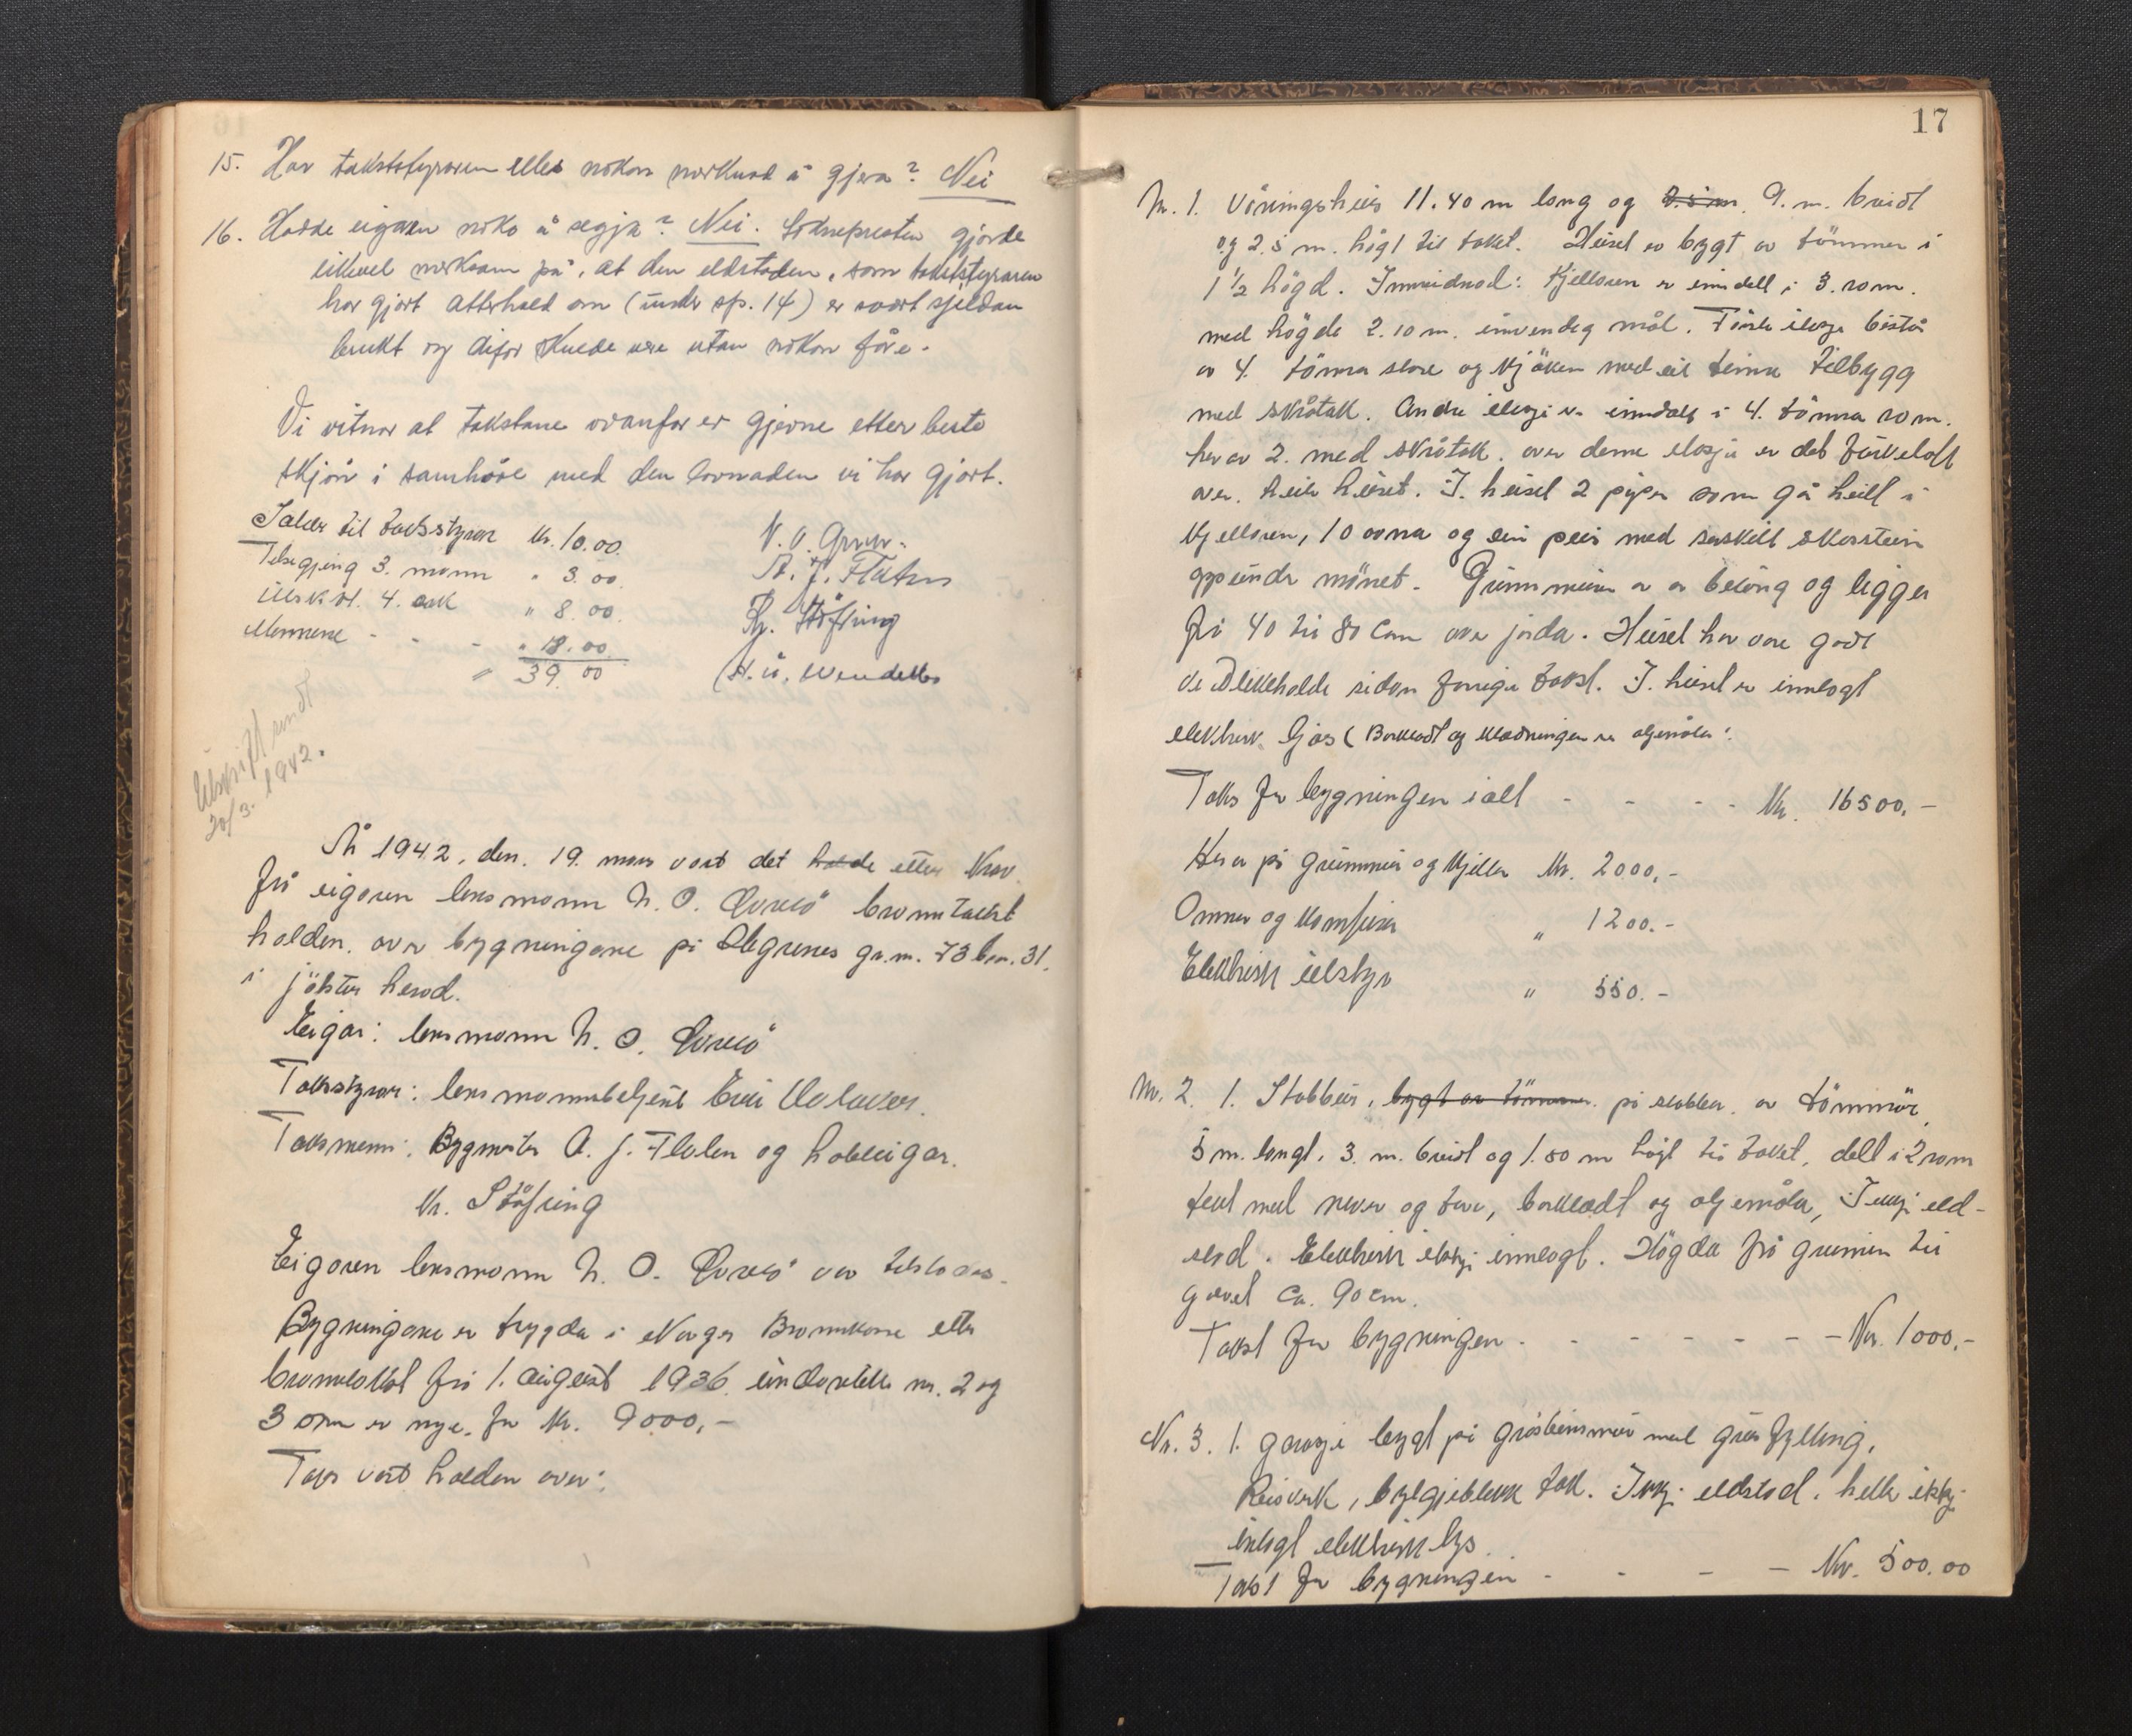 15. Har takststyraren elles nokon merknad å gjera? Nei
16. Hadde eigaren noko å segja? Nei. Soknepresten gjorde
likevel merksam på, at den eldstaden, som takststyraren
har gjort atterhald om (under sp. 14) er svært sjeldan
brukt og difor skulde vere utan nokon fåre.
Vi vitnar at takstane ovanfor er gjevne etter beste
skjøn i samhøve med den lovnaden vi har gjort.
Salær til takststyrar Kr. 10.00.
Tilsegjing 3. mann " 3.00.
Utskr. 4. ark " 8.00.
Mennene - - - " 18.00
" 39.00
A. J. Flaten
Kr. Støfring
Utskrift sendt
20/3. 1942.
År 1942, den. 19. mars vart det halde etter krav
frå eigaren lensmann N. O. branntakst
halden. over bygningane på gr.nr. 73 br.nr. 31.
i Jølster herad.
Eigar: lensmann N. O.
Takstyrar: lensmannsbetjent
Taksmenn: Bygmester A. J. Flaten og habeigar.
Kr. Støfring
Eigaren lensmann N. O. var tilstades.
Bygningane er trygda i Norges Brannkasse etter
branntakst frå 1. august 1936 undanteke nr. 2 og
3 som er nye. for kr. 9000,-
Taks vart halden over:
17
Nr. 1. Våningshus 11.40 m lang og 8.5 m. 9. m. breidt
og 2.5 m. högt til taket. Huset er bygt av tömmer i
1 1/2 högd. Innreidnad: Kjellaren er inndelt i 3. rom.
med högde 2.10 m. innvendig mål. Första etasje består
av 4. tömra stove og kjöken med eit tilbygg
med skråtak. Andre etasje er inndelt i 4. tömra rom.
herav 2. med skråtak. over denne etasje er det
over heile huset. I. huset 2 piper som gå heilt i
kjellaren, 10 omna og ein peis med serskilt skorstein
uppunder mönet. Grunnmuren er av betong og ligger
frå 40 til 80 cm over jorda. Huset har vore godt
vedlikehalde sidan forrige takst. I. huset er innlagt
elektrisk ljos (Bordkledt og kledningen er oljemåla.
Taks for bygningen i alt - - - - Kr. 16500.-
Herav på grunnmur og kjeller Kr. 2000,-
Omner og komfyrer " 1200.-
Elektrisk utstyr " 550.-
Nr. 2. 1. Stabbur, bygt av tömmer. på stabber. av tömmer,
5 m. langt. 3. m. breidt og 1.80 m högt til taket, delt i 2 rom
tekt med never og torv, bordkledt og oljemåla, Ikkje eld-
stad. Elektrisk ikkje innlagt. Högda frå grunnen til
golvet ca. 90 cm.
Takst for bygningen - - - - - - Kr. 1000.-
Nr. 3. 1. garasje bygt på gråsteinsmur med grus fylling.
Reisverk, bylgjeblekk tak. Ikkje eldstad. heller ikkje
inlagt elektrisk lys.
Takst for bygningen - - - - Kr. 500.00